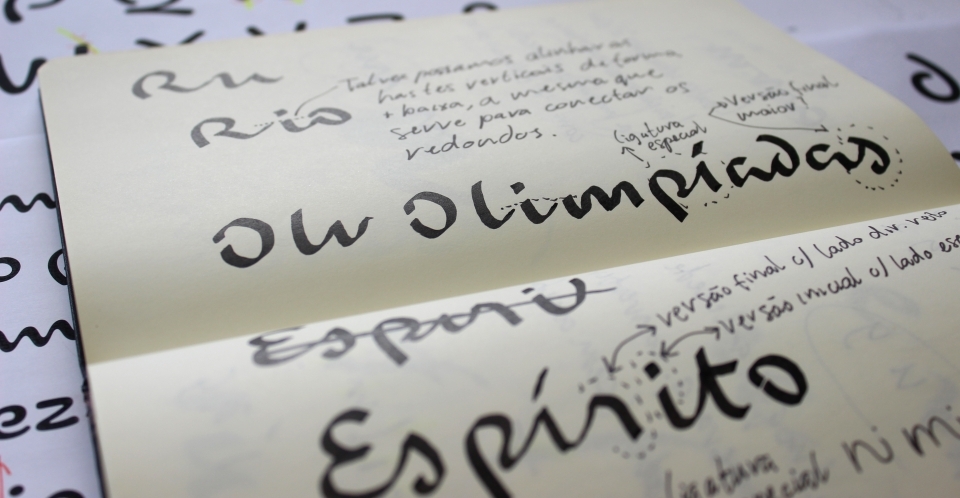 Ru
Rio
Talvez possamos alinhar as
hastes verticais de forma
+ baixa, a mesma que
serve para conectar os
redondos.
ligatura
especial
versão final
maior?
Olv Olimpíadas
Espiri
versão final c/ lado dir. reto
versão inicial c/ lado
Espírito
ligatura
especial
ni mi
ez